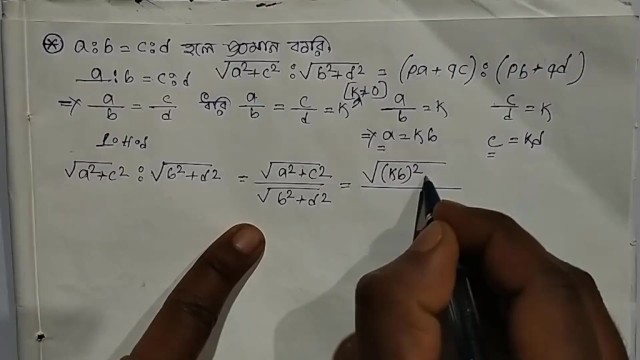 ⊛ a:b = c:d হলে প্রমান করি।
a:b = c:d √a²+c² : √b²+d² = (pa+qc):(pb+qd)
⇒ a/b = c/d ধরি a/b = c/d = K [K≠0] a/b = K c/d = K
⇒ a = Kb c = Kd
L.H.S
√a²+c² : √b²+d² = √a²+c² / √b²+d² = √(Kb)²